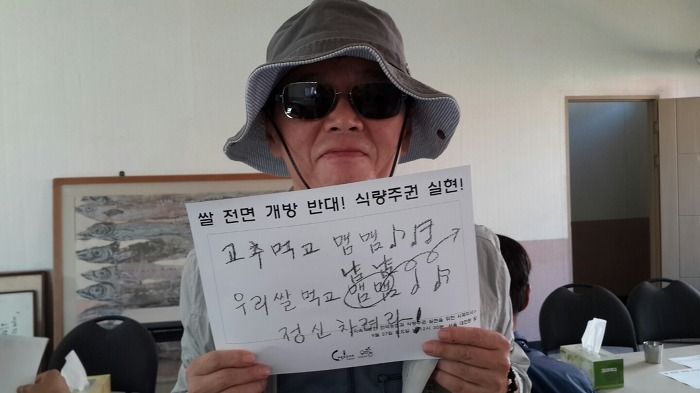 쌀 전면 개방 반대! 식량주권 실현!
고추먹고 맴맴♪♬
냠냠
우리쌀 먹고 맴맴♪♬
정신차려라!